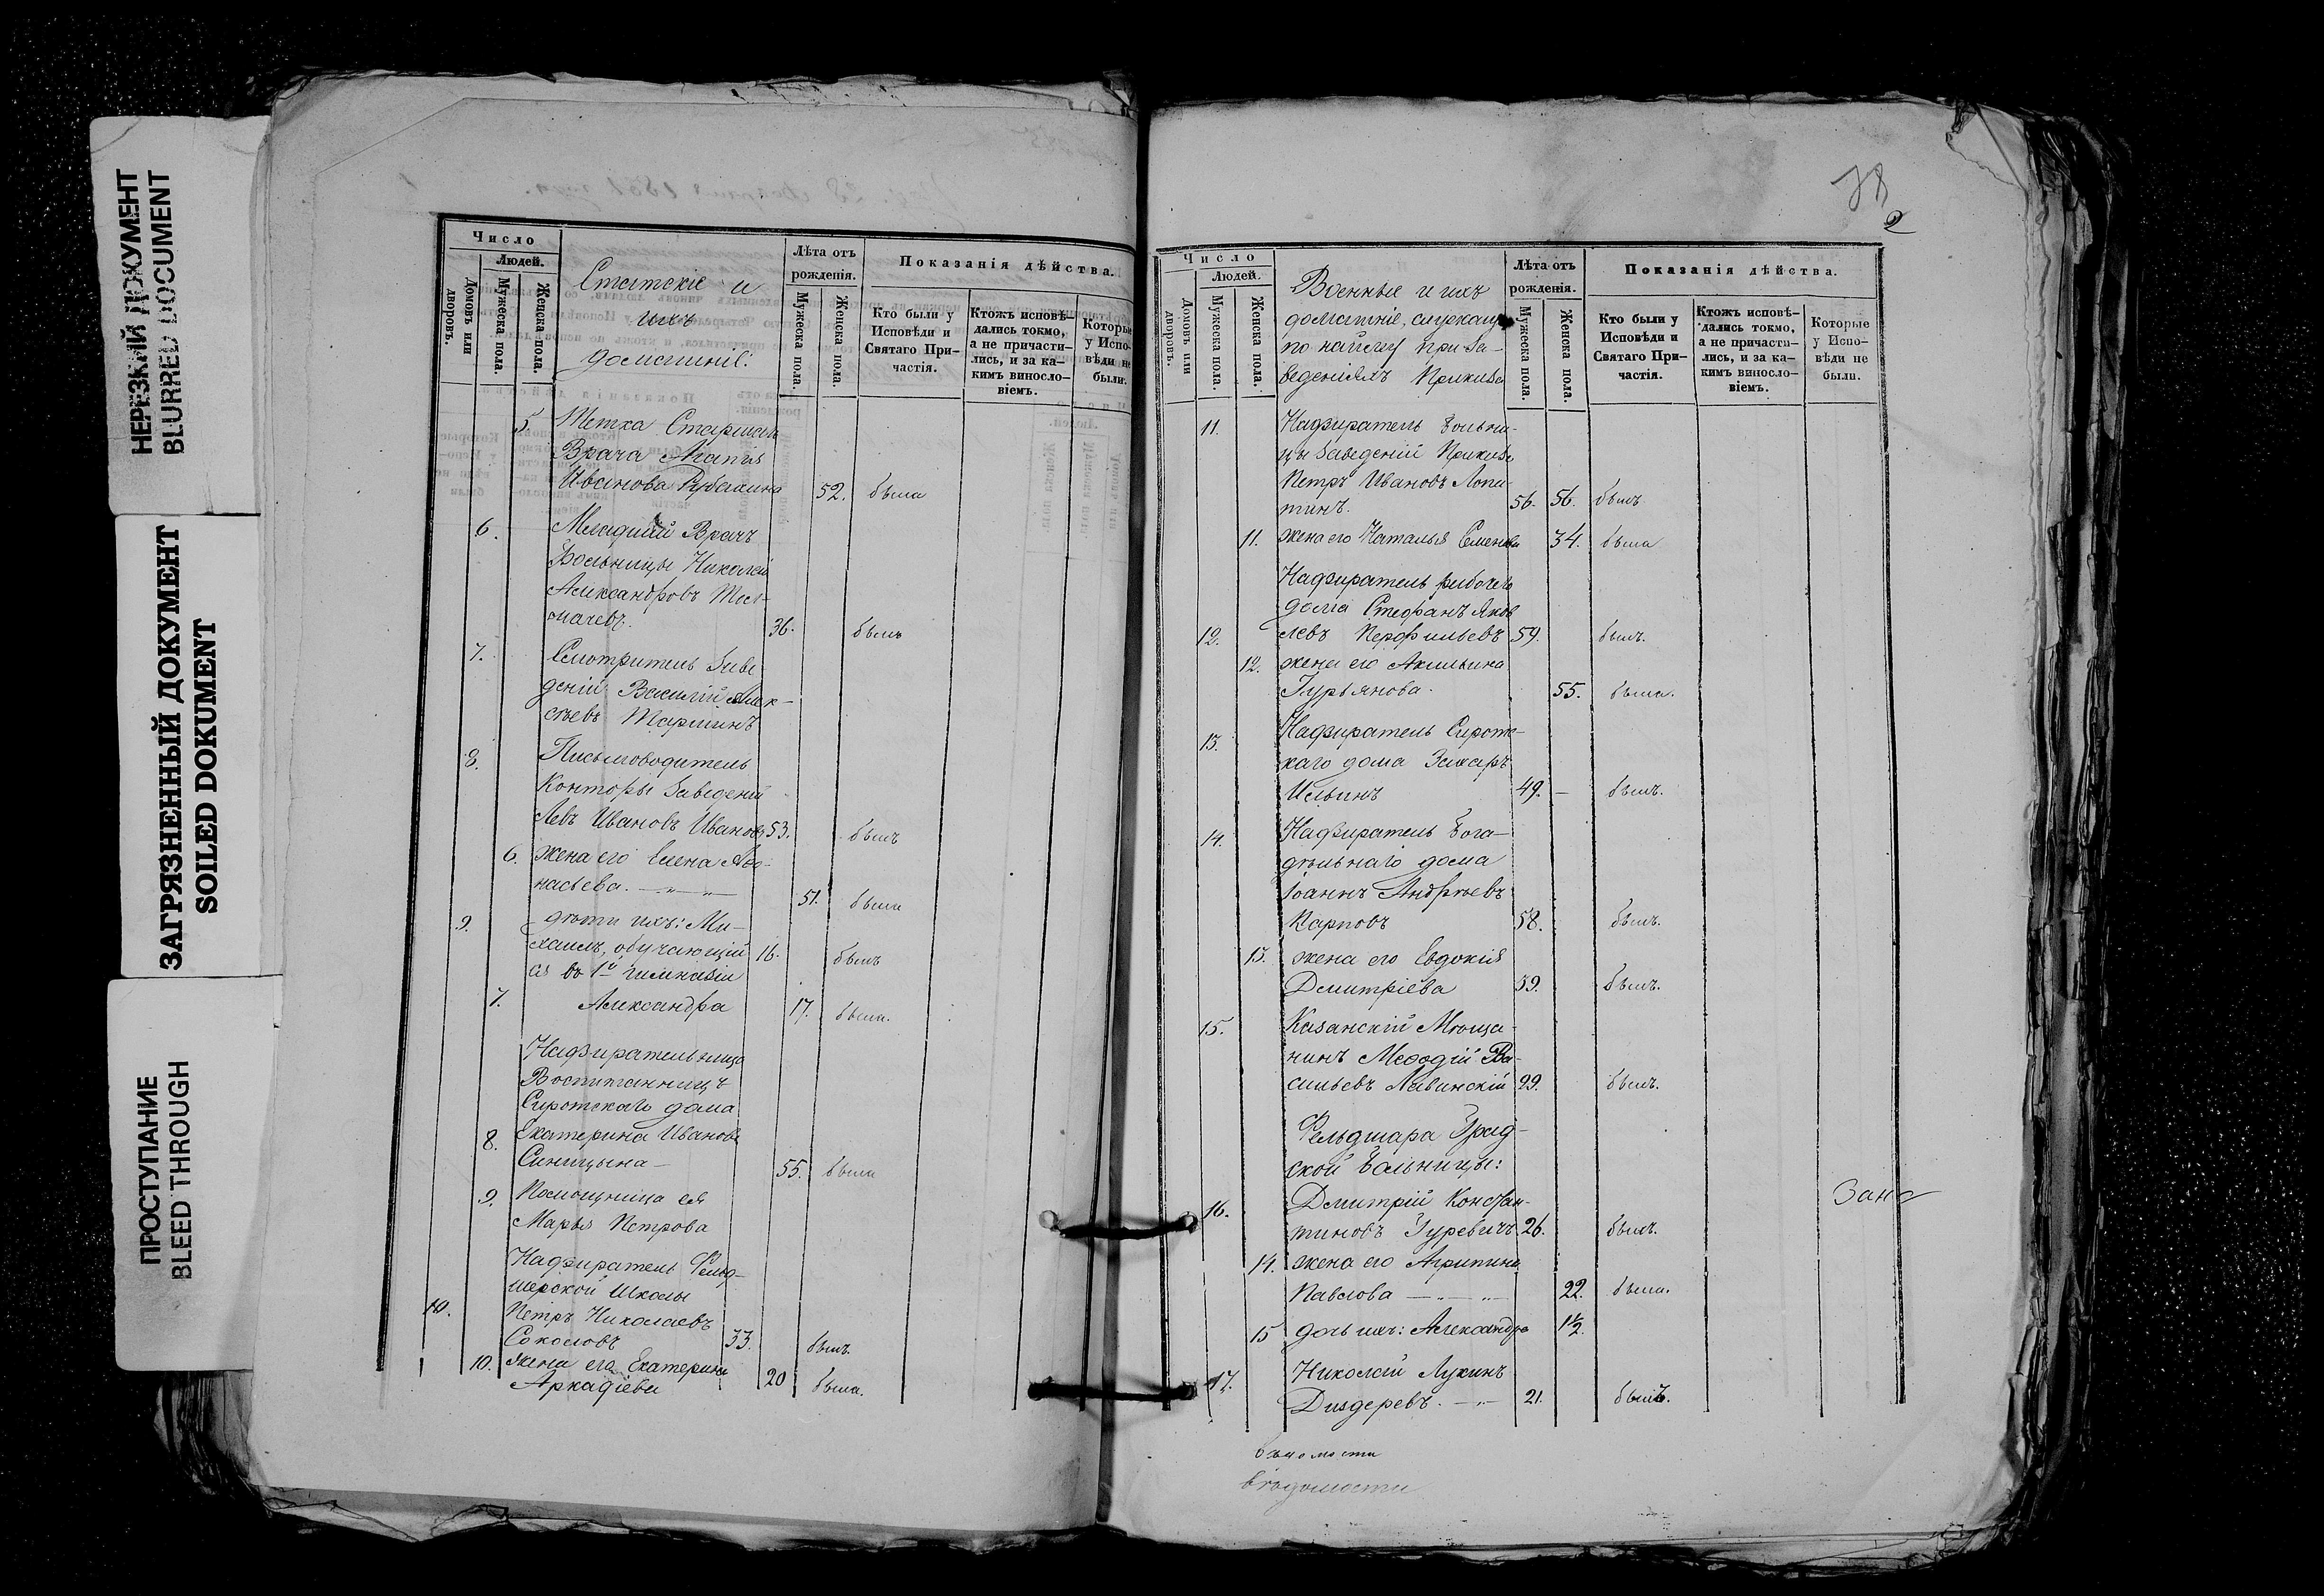 НЕРЕЗКИЙ ДОКУМЕНТ
BLURRED DOCUMENT
ЗАГРЯЗНЕННЫЙ ДОКУМЕНТ
SOILED DOKUMENT
ПРОСТУПАНИЕ
BLEED THROUGH
Число
Людей.
Домовъ или дворовъ.
Мужеска пола.
Женска пола.
Статскіе и
ихъ
домашніе:
Лѣта отъ рожденія.
Мужеска пола.
Женска пола.
Показанія дѣйства.
Кто были у Исповѣди и Святаго Причастія.
Ктожъ исповѣдались токмо, а не причастились, и за какимъ винословіемъ.
Которые у Исповѣди не были.
5. Тетка Старшаго
Врача Агапія
Иванова Рубахина 52. была
6. Младшій Врачъ
Больницы Николай
Александровъ Тол-
мачевъ. 36. былъ
7. Смотритель Заве
деній Василій Алек-
сѣевъ Таршинъ
8. Письмоводитель
Конторы Заведеній
Левъ Ивановъ Ивановъ 53. былъ
6. жена его Елена Аѳа-
насьева. 51. была
9. дѣти ихъ: Ми-
хаилъ, обучающій 16. былъ
ся въ 1й гимназіи
7. Александра 17. была.
Надзирательница
Воспитанницъ
Сиротскаго дома
8. Екатерина Иванова
Синицына 55. была
9. Помощница ея
Марья Петрова
Надзиратель Фельд-
шерской Школы
10. Петръ Николаевъ
Соколовъ 33. былъ.
10. жена его Екатерина
Аркадіева 20 была.
78
2
Число
Людей.
Домовъ или дворовъ.
Мужеска пола.
Женска пола.
Военные и ихъ
домашніе, служащ
по найму при За-
веденіямъ Приказа
Лѣта отъ рожденія.
Мужеска пола.
Женска пола.
Показанія дѣйства.
Кто были у Исповѣди и Святаго Причастія.
Ктожъ исповѣдались токмо, а не причастились, и за какимъ винословіемъ.
Которые у Исповѣди не были.
11. Надзиратель Больни-
цы Заведеній Приказа
Петръ Ивановъ Лопа-
тинъ. 56. 56. былъ
11. жена его Наталья Семенова 34. была
Надзиратель рабочаго
дома Стефанъ Яков
12. левъ Перфильевъ 59. былъ.
12. жена его Акилина
Гурьянова. 55. была.
13. Надзиратель Сиротс-
каго дома Захаръ
Ильинъ 49. — былъ.
14. Надзиратель Бога-
дѣльнаго дома
Іоаннъ Андреевъ
Карповъ 58. былъ.
13. жена его Евдокія
Дмитріева 39. былъ.
15. Казанскій Мѣща-
нинъ Меѳодій Ва-
сильевъ Лавинскій 29. былъ.
Фельдшара Град-
ской Больницы:
16. Дмитрій Констан-
тиновъ Гуревичъ 26. былъ.
14. жена его Агрипина
Павлова 22. была.
15 дочь ихъ: Александра 1½.
17. Николай Лукинъ
Диздеревъ. 21. былъ.
вѣдомости